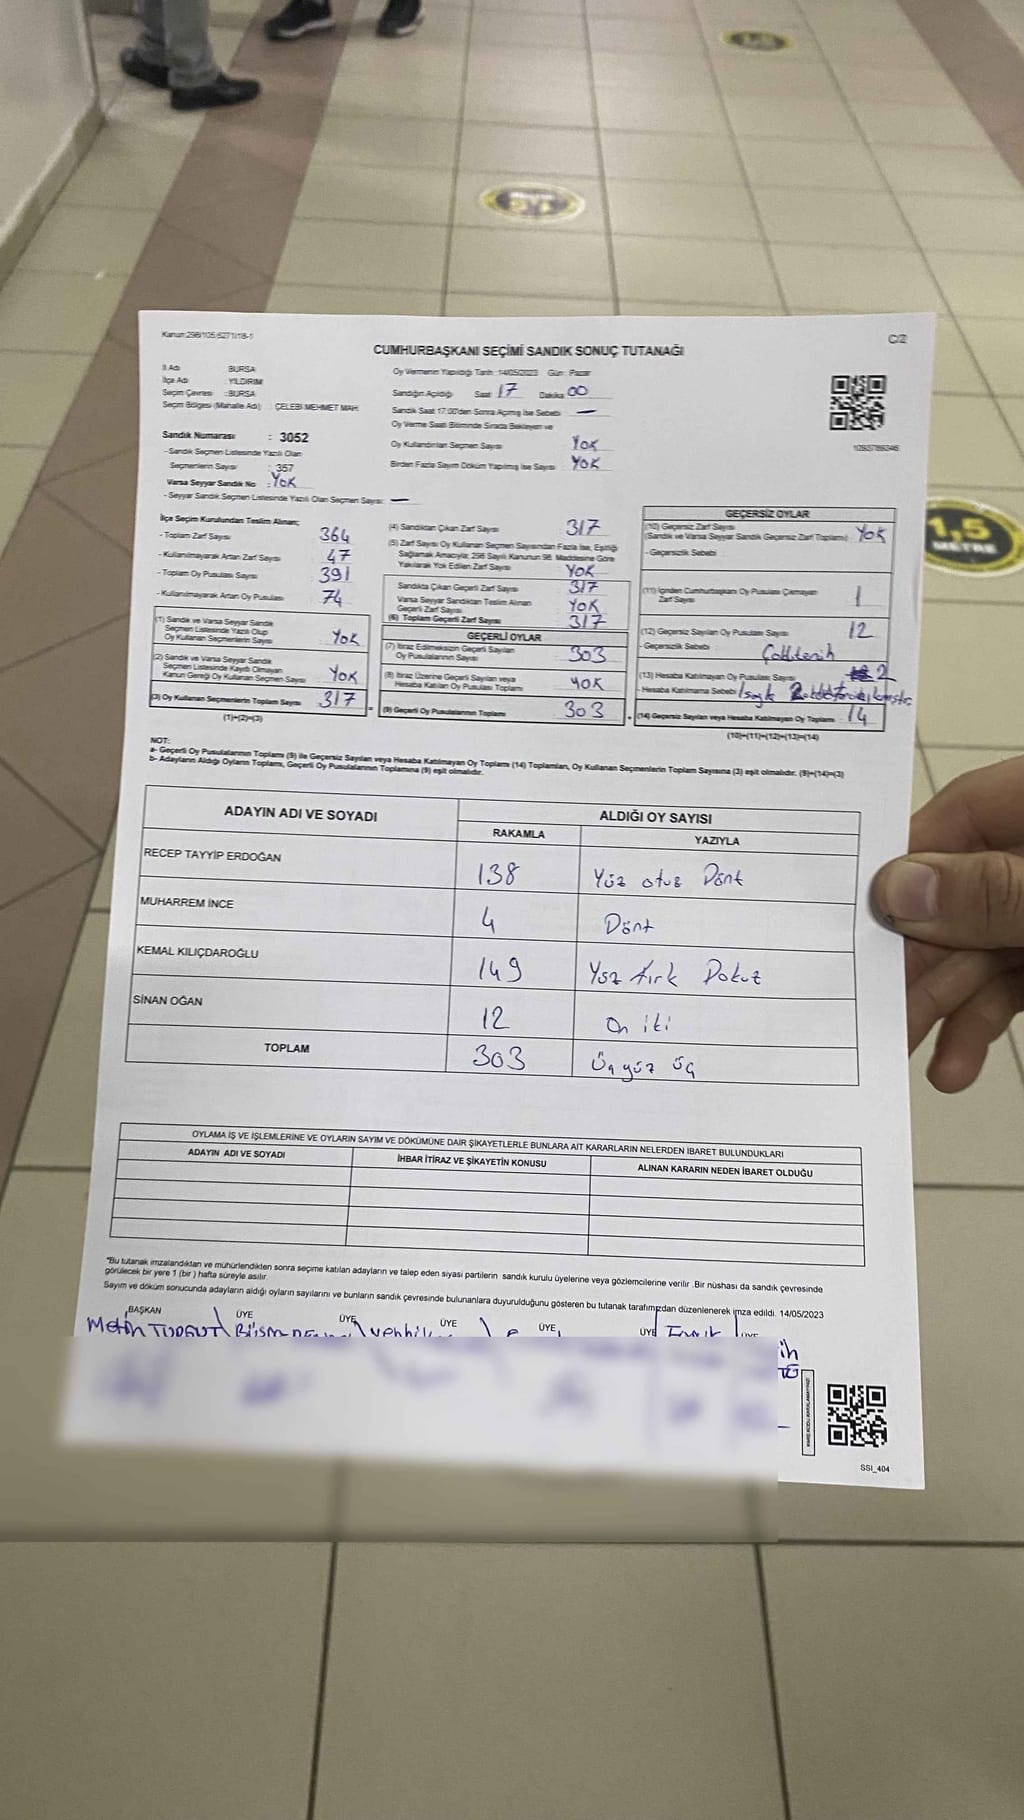 Kanun:298/105;6271/18-1
C/2
CUMHURBAŞKANI SEÇİMİ SANDIK SONUÇ TUTANAĞI
İl Adı : BURSA
İlçe Adı : YILDIRIM
Seçim Çevresi : BURSA
Seçim Bölgesi (Mahalle Adı) : ÇELEBİ MEHMET MAH.
Sandık Numarası : 3052
- Sandık Seçmen Listesinde Yazılı Olan
Seçmenlerin Sayısı : 357
Varsa Seyyar Sandık No : Yok
- Seyyar Sandık Seçmen Listesinde Yazılı Olan Seçmen Sayısı: —
Oy Vermenin Yapıldığı Tarih :14/05/2023 Gün : Pazar
Sandığın Açıldığı Saat 17 Dakika 00
Sandık Saat 17:00'den Sonra Açımış İse Sebebi —
Oy Verme Saati Bitiminde Sırada Bekleyen ve
Oy Kullandırılan Seçmen Sayısı Yok
Birden Fazla Sayım Döküm Yapılmış İse Sayısı Yok
İlçe Seçim Kurulundan Teslim Alınan;
- Toplam Zarf Sayısı 364
- Kullanılmayarak Artan Zarf Sayısı 47
- Toplam Oy Pusulası Sayısı 391
- Kullanılmayarak Artan Oy Pusulası 74
(1) Sandık ve Varsa Seyyar Sandık
Seçmen Listesinde Yazılı Olup
Oy Kullanan Seçmenlerin Sayısı Yok
(2) Sandık ve Varsa Seyyar Sandık
Seçmen Listesinde Kaydı Olmayan
Kanun Gereği Oy Kullanan Seçmen Sayısı Yok
(3) Oy Kullanan Seçmenlerin Toplam Sayısı 317
(1)+(2)=(3)
(4) Sandıktan Çıkan Zarf Sayısı 317
(5) Zarf Sayısı Oy Kullanan Seçmen Sayısından Fazla İse, Eşitliği
Sağlamak Amacıyla; 298 Sayılı Kanunun 98. Maddesine Göre
Yakılarak Yok Edilen Zarf Sayısı Yok
Sandıkta Çıkan Geçerli Zarf Sayısı 317
Varsa Seyyar Sandıktan Teslim Alınan
Geçerli Zarf Sayısı Yok
(6) Toplam Geçerli Zarf Sayısı 317
GEÇERLİ OYLAR
(7) İtiraz Edilmeksizin Geçerli Sayılan
Oy Pusulalarının Sayısı 303
(8) İtiraz Üzerine Geçerli Sayılan veya
Hesaba Katılan Oy Pusulaları Toplamı Yok
(9) Geçerli Oy Pusulalarının Toplamı 303
GEÇERSİZ OYLAR
(10) Geçersiz Zarf Sayısı
(Sandık ve Varsa Seyyar Sandık Geçersiz Zarf Toplamı) Yok
- Geçersizlik Sebebi :
(11) İçinden Cumhurbaşkanı Oy Pusulası Çıkmayan
Zarf Sayısı 1
(12) Geçersiz Sayılan Oy Pusulası Sayısı 12
- Geçersizlik Sebebi :
(13) Hesaba Katılmayan Oy Pusulası Sayısı 2
- Hesaba Katılmama Sebebi
(14) Geçersiz Sayılan veya Hesaba Katılmayan Oy Toplamı 14
(10)+(11)+(12)+(13)=(14)
NOT:
a- Geçerli Oy Pusulalarının Toplamı (9) ile Geçersiz Sayılan veya Hesaba Katılmayan Oy Toplamı (14) Toplamları, Oy Kullanan Seçmenlerin Toplam Sayısına (3) eşit olmalıdır. (9)+(14)=(3)
b- Adayların Aldığı Oyların Toplamı, Geçerli Oy Pusulalarının Toplamına (9) eşit olmalıdır.
ADAYIN ADI VE SOYADI ALDIĞI OY SAYISI
RAKAMLA YAZIYLA
RECEP TAYYİP ERDOĞAN 138 Yüz otuz Dört
MUHARREM İNCE 4 Dört
KEMAL KILIÇDAROĞLU 149 Yüz kırk Dokuz
SİNAN OĞAN 12 On iki
TOPLAM 303 Üç yüz üç
OYLAMA İŞ VE İŞLEMLERİNE VE OYLARIN SAYIM VE DÖKÜMÜNE DAİR ŞİKAYETLERLE BUNLARA AİT KARARLARIN NELERDEN İBARET BULUNDUKLARI
ADAYIN ADI VE SOYADI İHBAR İTİRAZ VE ŞİKAYETİN KONUSU ALINAN KARARIN NEDEN İBARET OLDUĞU
*Bu tutanak imzalandıktan ve mühürlendikten sonra seçime katılan adayların ve talep eden siyasi partilerin sandık kurulu üyelerine veya gözlemcilerine verilir .Bir nüshası da sandık çevresinde
görülecek bir yere 1 (bir) hafta süreyle asılır.
Sayım ve döküm sonucunda adayların aldığı oyların sayılarını ve bunların sandık çevresinde bulunanlara duyurulduğunu gösteren bu tutanak tarafımızdan düzenlenerek imza edildi. 14/05/2023
BAŞKAN ÜYE ÜYE ÜYE ÜYE ÜYE ÜYE
Metin
SSI_404
1,5
METRE